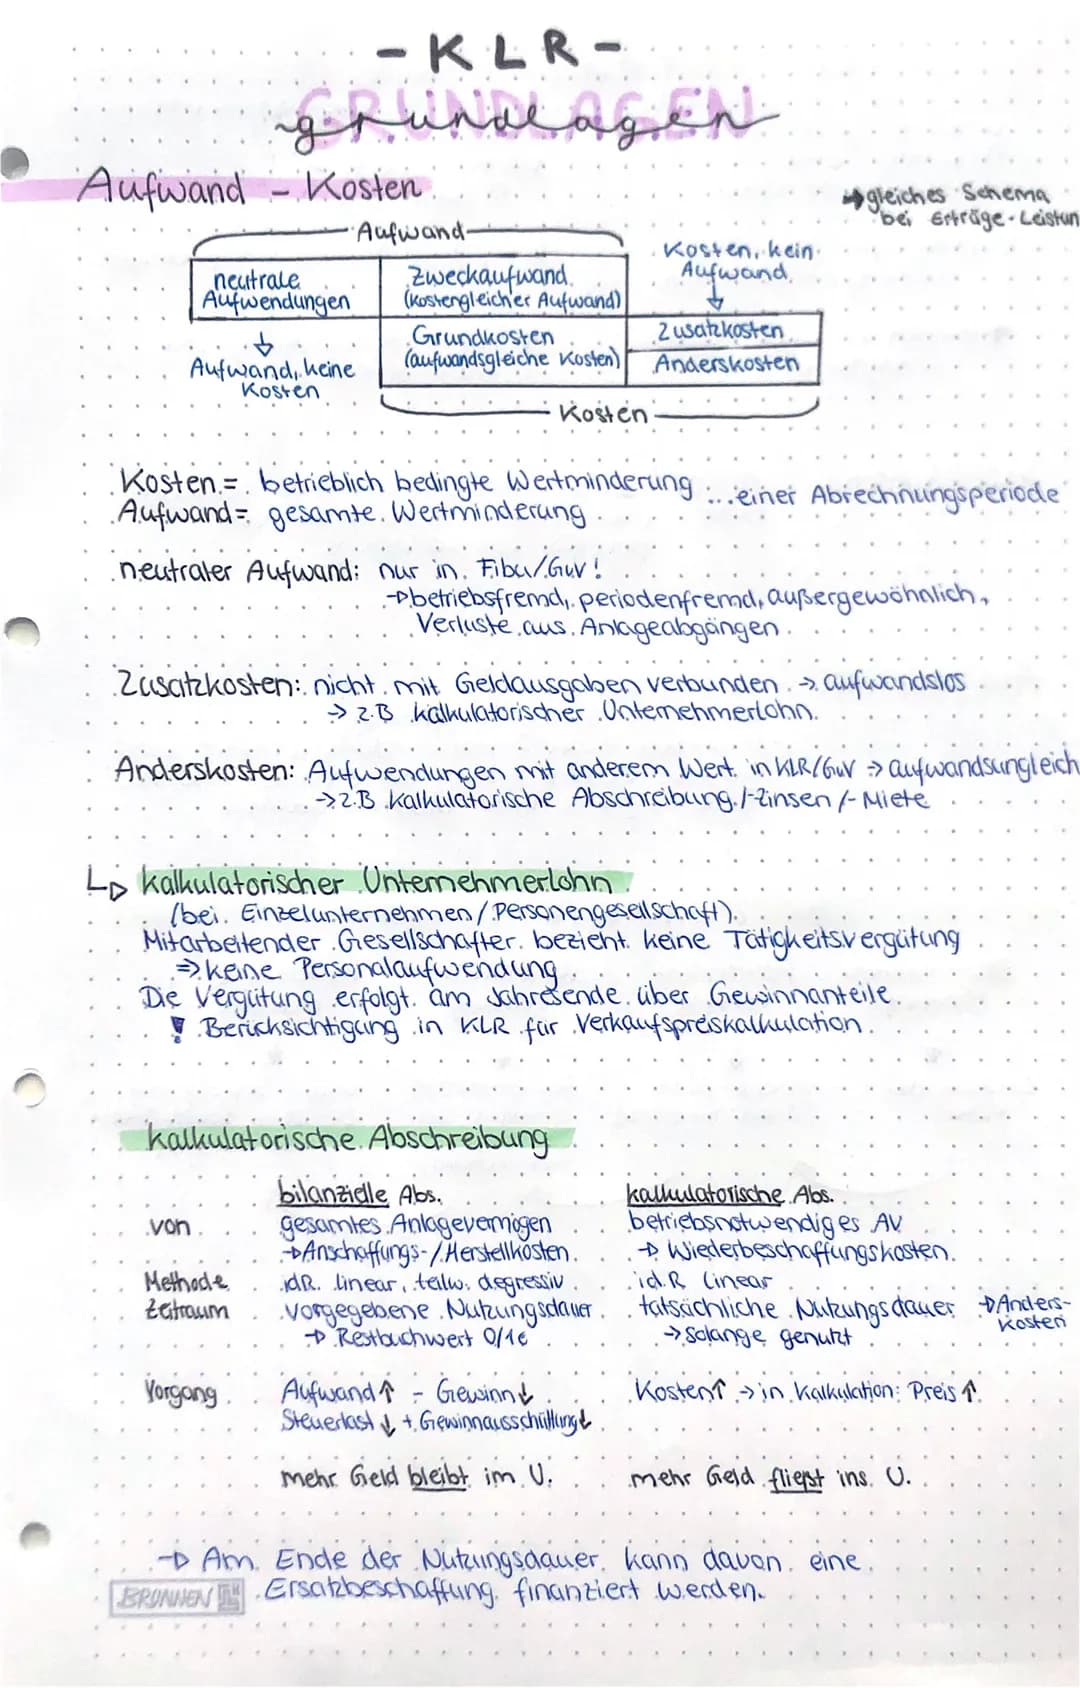 - KLR -
GRUNDLAGEN
grundlagen
Aufwand - Kosten
→ gleiches Schema
bei Erträge - Leistun
Aufwand
Kosten, kein
Aufwand
neutrale
Aufwendungen
Zweckaufwand
(kostengleicher Aufwand)
Grundkosten
(aufwandsgleiche Kosten)
Zusatzkosten
Anderskosten
Aufwand, keine
Kosten
Kosten
Kosten = betrieblich bedingte Wertminderung ...einer Abrechnungsperiode
Aufwand = gesamte Wertminderung
neutraler Aufwand: nur in Fibu/Guv!
→ betriebsfremd, periodenfremd, außergewöhnlich,
Verluste aus Anlageabgängen
Zusatzkosten: nicht mit Geldausgaben verbunden → aufwandslos
→ z.B kalkulatorischer Unternehmerlohn.
Anderskosten: Aufwendungen mit anderem Wert in KLR/Guv → aufwandsungleich
→ z.B kalkulatorische Abschreibung /-Zinsen /- Miete
↳ kalkulatorischer Unternehmerlohn
(bei Einzelunternehmen / Personengesellschaft)
Mitarbeitender Gesellschafter bezieht keine Tätigkeitsvergütung
⇒ keine Personalaufwendung
Die Vergütung erfolgt am Jahresende über Gewinnanteile.
! Berücksichtigung in KLR für Verkaufspreiskalkulation.
kalkulatorische Abschreibung
bilanzielle Abs. kalkulatorische Abs.
von gesamtes Anlagevermögen betriebsnotwendiges AV
→ Anschaffungs-/Herstellkosten → Wiederbeschaffungskosten.
Methode idR. linear, teilw. degressiv id.R linear
Zeitraum vorgegebene Nutzungsdauer tatsächliche Nutzungsdauer → Anders-
kosten
→ Restbuchwert 0/1€ → solange genutzt
Vorgang Aufwand ↑ - Gewinn ↓ Kosten ↑ → in Kalkulation: Preis ↑
Steuerlast ↓ + Gewinnausschüttung ↓
mehr Geld bleibt im U. mehr Geld fließt ins U.
→ Am Ende der Nutzungsdauer kann davon eine
Ersatzbeschaffung finanziert werden.
BRUNNEN